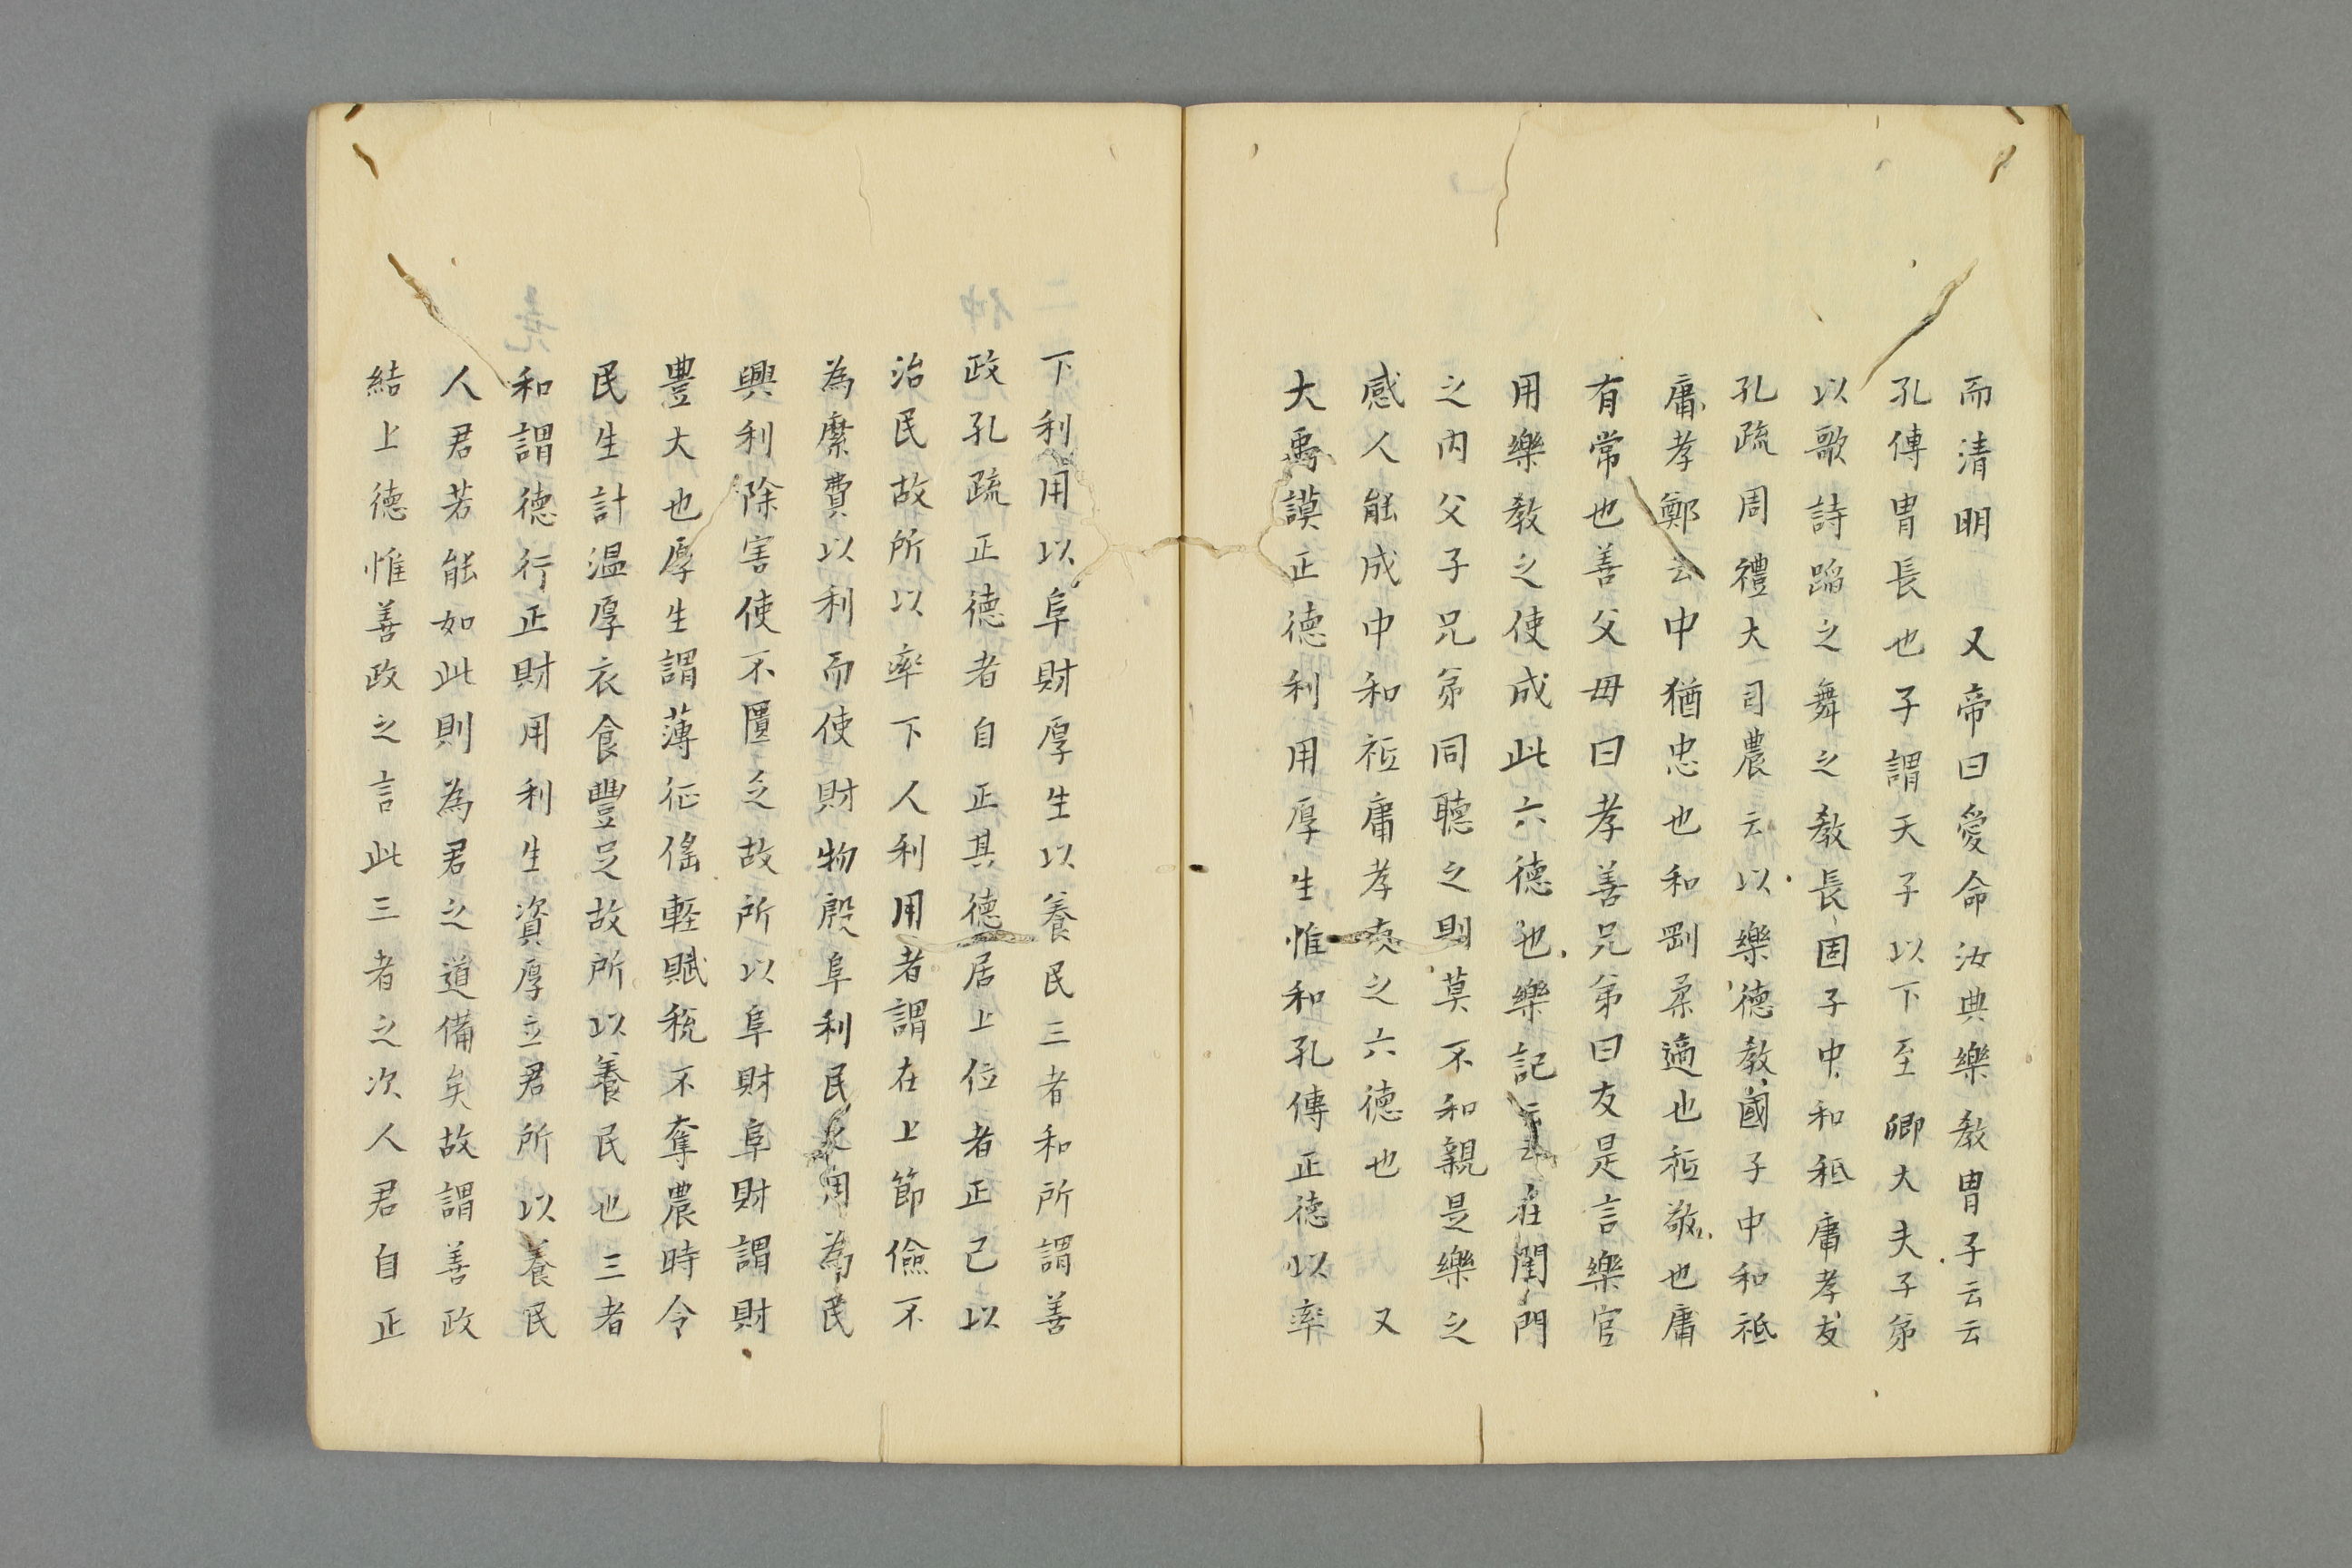 而清明　又帝曰愛命汝典樂教胄子云云
孔傳胄長也子謂天子以下至卿大夫子弟
以歌詩蹈之舞之教長固子中和祗庸孝友
孔疏周禮大司農云以樂德教國子中和祗
庸孝鄭云中猶忠也和剛柔適也祗敬也庸
有常也善父母曰孝善兄弟曰友是言樂官
用樂教之使成此六德也樂記云在閨門
之內父子兄弟同聽之則莫不和親是樂之
感人能成中和祗庸孝友之六德也　又
大禹謨正德利用厚生惟和孔傳正德以率
下利用以阜財厚生以養民三者和所謂善
政孔疏正德者自正其德居上位者正己以
治民故所以率下人利用者謂在上節儉不
為縻費以利而使財物殷阜利民之用為民
興利除害使不匱乏故所以阜財阜財謂財
豐大也厚生謂薄征徭輕賦稅不奪農時令
民生計溫厚衣食豐足故所以養民也三者
和謂德行正財用利生資厚立君所以養民
人君若能如此則為君之道備矣故謂善政
結上德惟善政之言此三者之次人君自正